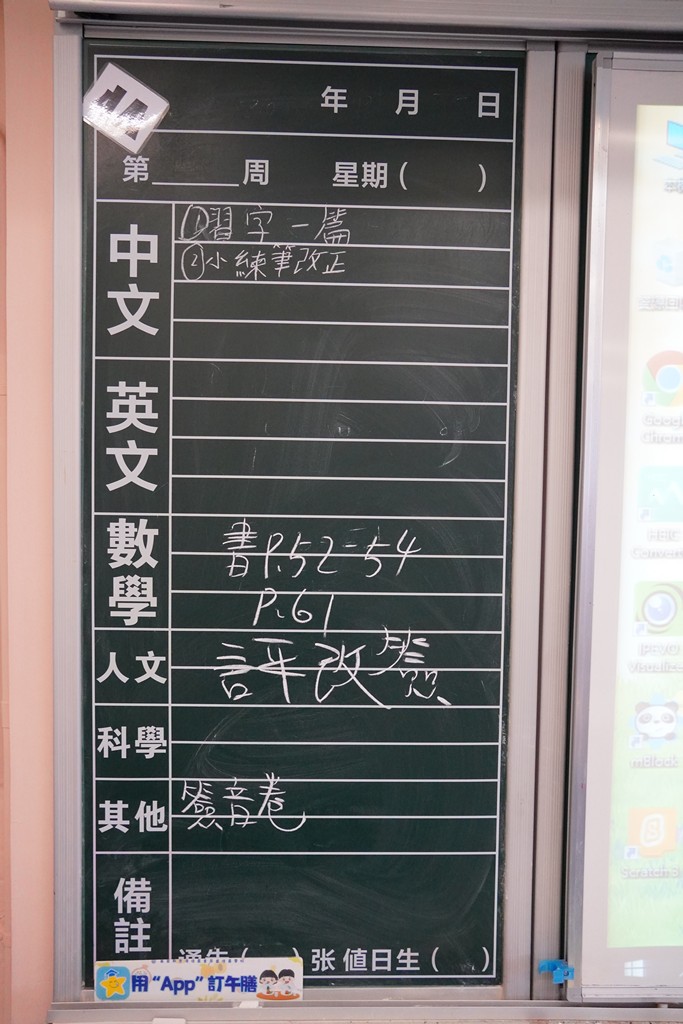 年 月 日
第 周 星期( )
中文
①習字一篇
②小練筆改正
英文
數學
書P.52-54
P.61
人文
評改簽
科學
其他
簽音卷
備註
通告( )张 值日生( )
用“App”訂午膳
Google
Chrome
HEIC
IPEVO
mBlock
Scratch 3